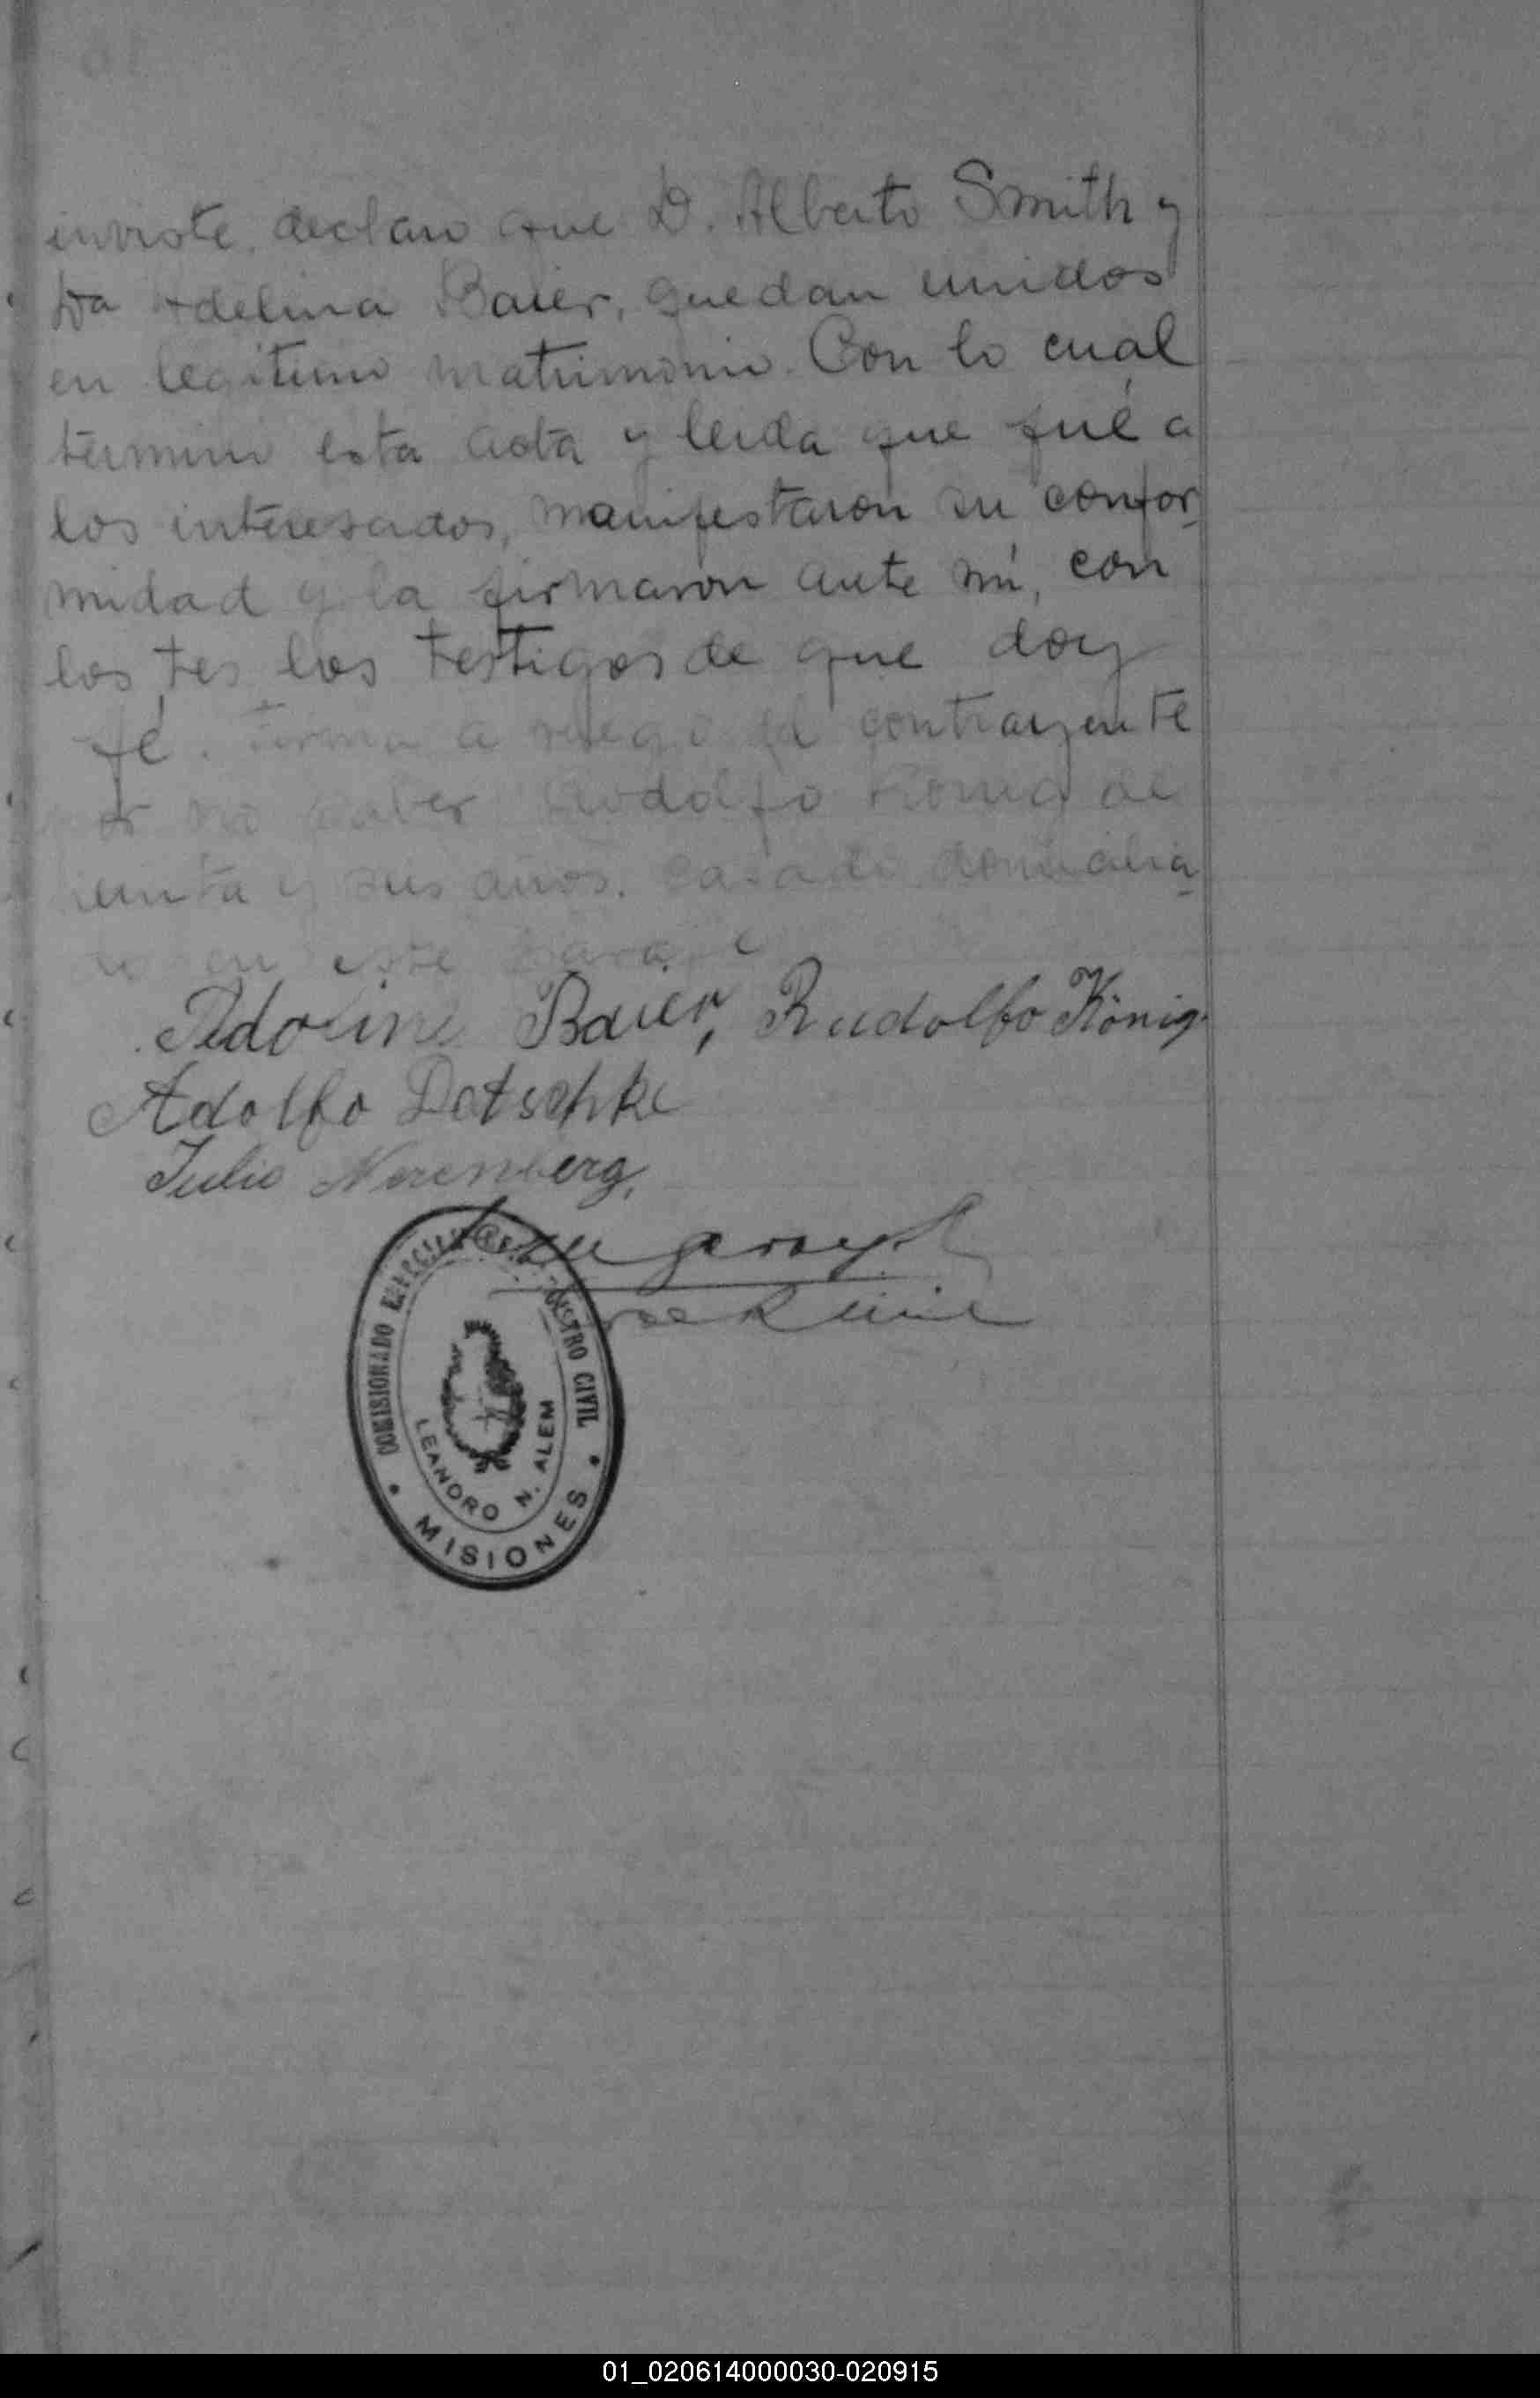 inviste, declaro que D. Alberto Smith y
Da Adelina Baier, quedan unidos
en legitimo matrimonio. Con lo cual
termino esta acta y leida que fué a
los interesados, manifestaron su confor-
midad y la firmaron ante mi, con
los tes los testigos de que doy
fé. Firma a ruego el contrayente
por no saber Rodolfo König de
treinta y seis años. casado domicilia-
do en este paraje
Adoline Baier, Rudolfo König.
Adolfo Detschke
Julio Nerenberg,
COMISIONADO REGISTRO CIVIL
LEANDRO N. ALEM
MISIONES
01_020614000030-020915